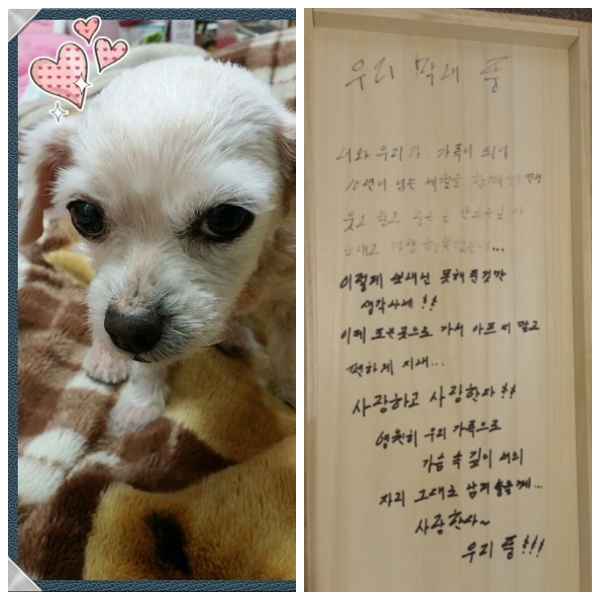 우리 막내 퐁
너와 우리가 가족이 되어
10년이 넘는 세월을 함께하면서
웃고 울고
보내고
이렇게 보내닌 못해준것만
생각나네!!
이제 좋은곳으로 가서 아프지 말고
편하게 지내...
사랑하고 사랑한다!!
영원히 우리 가족으로
가슴 속 깊이 너의
자리 그대로 남겨놓을께...
사랑한다~
우리 퐁!!!